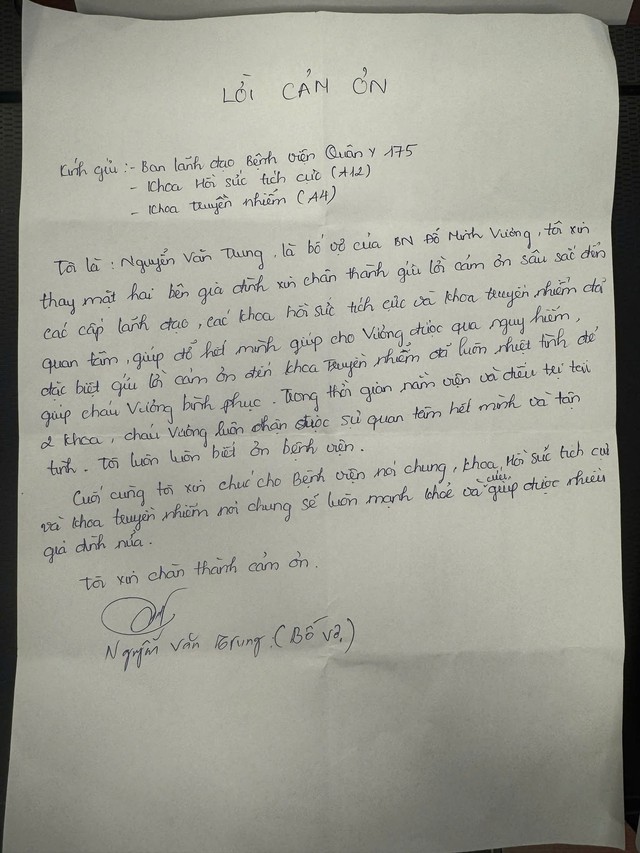 LỜI CẢM ƠN
Kính gửi :- Ban lãnh đạo Bệnh viện Quân Y 175
- Khoa Hồi sức tích cực (A12)
- Khoa truyền nhiễm (A4)
Tôi là : Nguyễn Văn Trung, là bố vợ của BN Đỗ Minh Vương, tôi xin
thay mặt hai bên gia đình xin chân thành gửi lời cảm ơn sâu sắc đến
các cấp lãnh đạo, các khoa hồi sức tích cực và khoa truyền nhiễm đã
quan tâm, giúp đỡ hết mình giúp cho Vương được qua nguy hiểm,
đặc biệt gửi lời cảm ơn đến khoa Truyền nhiễm đã luôn nhiệt tình để
giúp cháu Vương bình phục. Trong thời gian nằm viện và điều trị tại
2 khoa, cháu Vương luôn nhận được sự quan tâm hết mình và tận
tình. Tôi luôn luôn biết ơn bệnh viện.
Cuối cùng tôi xin chúc cho Bệnh viện nói chung, khoa Hồi sức tích cực
và khoa truyền nhiễm nói chung sẽ luôn mạnh khỏe và cứu giúp được nhiều
gia đình nữa.
Tôi xin chân thành cảm ơn.
Nguyễn Văn Trung. (Bố vợ.)